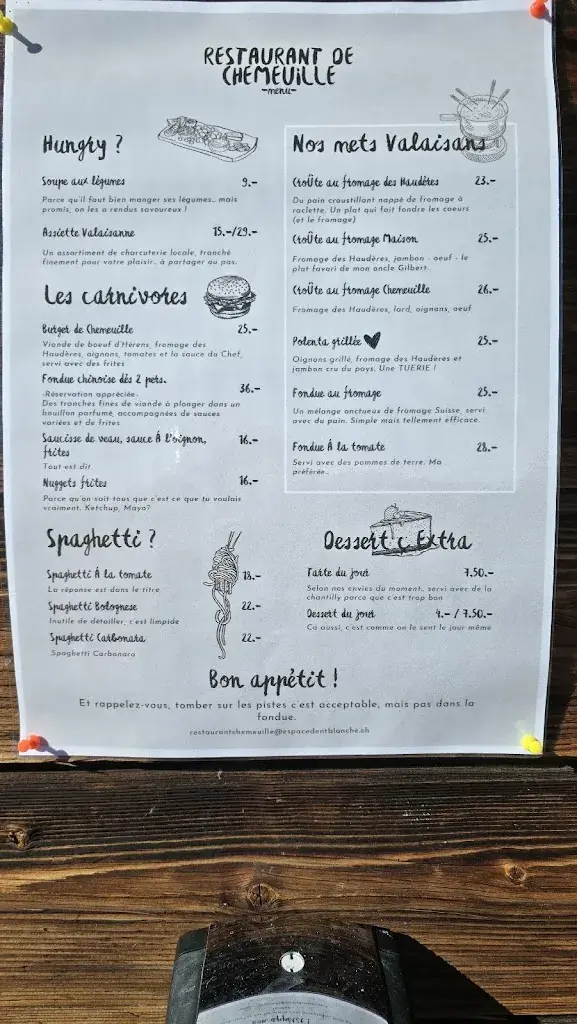 RESTAURANT DE
CHEMEUILLE
-menu-
Hungry ?
Soupe aux légumes 9.-
Parce qu'il faut bien manger ses légumes.. mais
promis, on les a rendus savoureux !
Assiette Valaisanne 15.-/29.-
Un assortiment de charcuterie locale, tranché
finement pour votre plaisir.. à partager ou pas.
Les carnivores
Burger de Chemeuille 25.-
Viande de boeuf d'Hérens, fromage des
Haudères, oignons, tomates et la sauce du Chef,
servi avec des frites
Fondue chinoise dès 2 pers. 36.-
-Réservation appréciée-
Des tranches fines de viande à plonger dans un
bouillon parfumé, accompagnées de sauces
variées et de frites
Saucisse de veau, sauce À l'oignon, 16.-
frites
Tout est dit
Nuggets frites 16.-
Parce qu'on sait tous que c'est ce que tu voulais
vraiment. Ketchup, Mayo?
Spaghetti ?
Spaghetti À la tomate 18.-
La réponse est dans le titre
Spaghetti Bolognese 22.-
Inutile de détailler, c'est limpide
Spaghetti Carbonara 22.-
Spaghetti Carbonara
Nos mets Valaisans
CroÛte au fromage des Haudères 23.-
Du pain croustillant nappé de fromage à
raclette. Un plat qui fait fondre les coeurs
(et le fromage)
CroÛte au fromage Maison 25.-
Fromage des Haudères, jambon - oeuf - le
plat favori de mon oncle Gilbert.
CroÛte au fromage Chemeuille 26.-
Fromage des Haudères, lard, oignons, oeuf
Polenta grillée 25.-
Oignons grillé, fromage des Haudères et
jambon cru du pays. Une TUERIE !
Fondue au fromage 25.-
Un mélange onctueux de fromage Suisse, servi
avec du pain. Simple mais tellement efficace.
Fondue À la tomate 28.-
Servi avec des pommes de terre. Ma
préférée..
Dessert & Extra
Tarte du jour 7.50.-
Selon nos envies du moment.. servi avec de la
chantilly parce que c'est trop bon
Dessert du jour 4.- / 7.50.-
Ca aussi, c'est comme on le sent le jour même
Bon appétit !
Et rappelez-vous, tomber sur les pistes c'est acceptable, mais pas dans la
fondue.
restaurantchemeuille@espacedentblanche.ch